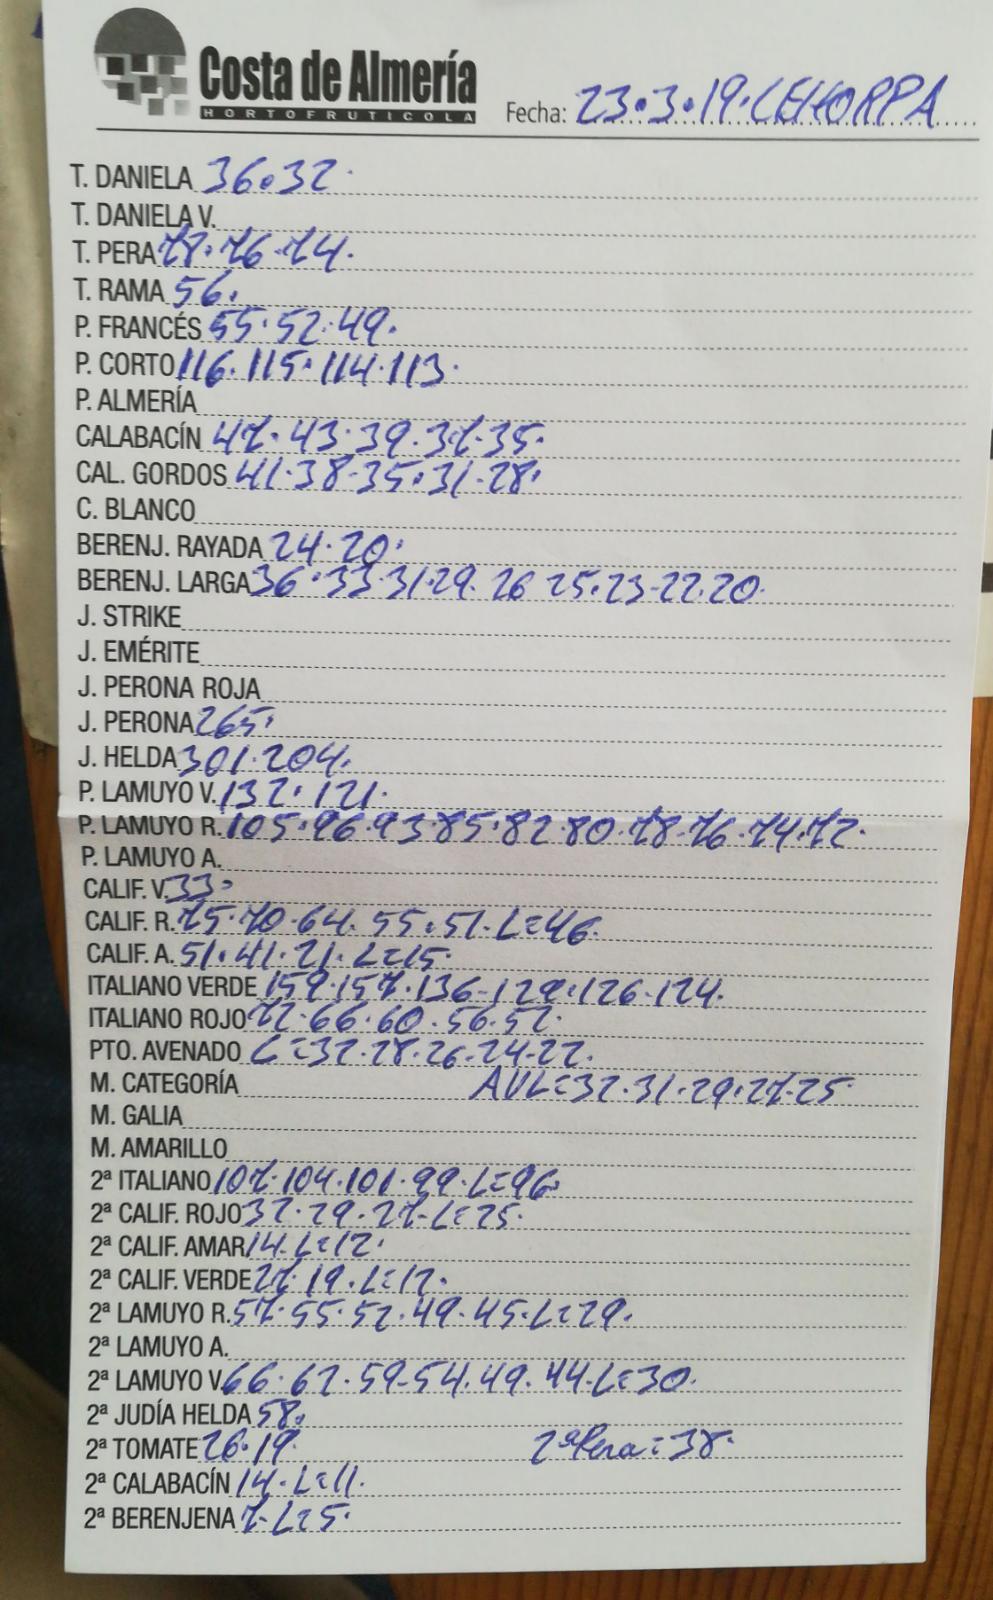 Costa de Almería
HORTOFRUTICOLA
Fecha: 23.3.19.CEHORPA
T. DANIELA 36.32.
T. DANIELA V.
T. PERA 78.76.74.
T. RAMA 56.
P. FRANCÉS 55.52.49.
P. CORTO 116.115.114.113.
P. ALMERÍA
CALABACÍN 47.43.39.37.35.
CAL. GORDOS 41.38.35.31.28.
C. BLANCO
BERENJ. RAYADA 24.20.
BERENJ. LARGA 36.33 31.29.26 25.23-22.20.
J. STRIKE
J. EMÉRITE
J. PERONA ROJA
J. PERONA 265.
J. HELDA 301.204.
P. LAMUYO V. 132.121.
P. LAMUYO R. 105.96.93.85.82.80.78.76.74.72.
P. LAMUYO A.
CALIF. V. 33.
CALIF. R. 75.70.64.55.51.L=46.
CALIF. A. 51.41.21.L=15.
ITALIANO VERDE 159.157.136-129.126.124.
ITALIANO ROJO 72.66.60.56.52.
PTO. AVENADO L=32.28.26.24-22.
M. CATEGORÍA AVL=32.31.29.27.25
M. GALIA
M. AMARILLO
2ª ITALIANO 107.104.101.99.L=96.
2ª CALIF. ROJO 32.29.27-L=25.
2ª CALIF. AMAR 14.L=12.
2ª CALIF. VERDE 27.19.L=12.
2ª LAMUYO R. 57.55.52.49.45.L=29.
2ª LAMUYO A.
2ª LAMUYO V. 66.62.59-54.49.44-L=30.
2ª JUDÍA HELDA 58.
2ª TOMATE 26.19. 2ª Pera=38.
2ª CALABACÍN 14.L=11.
2ª BERENJENA 7-L=5.